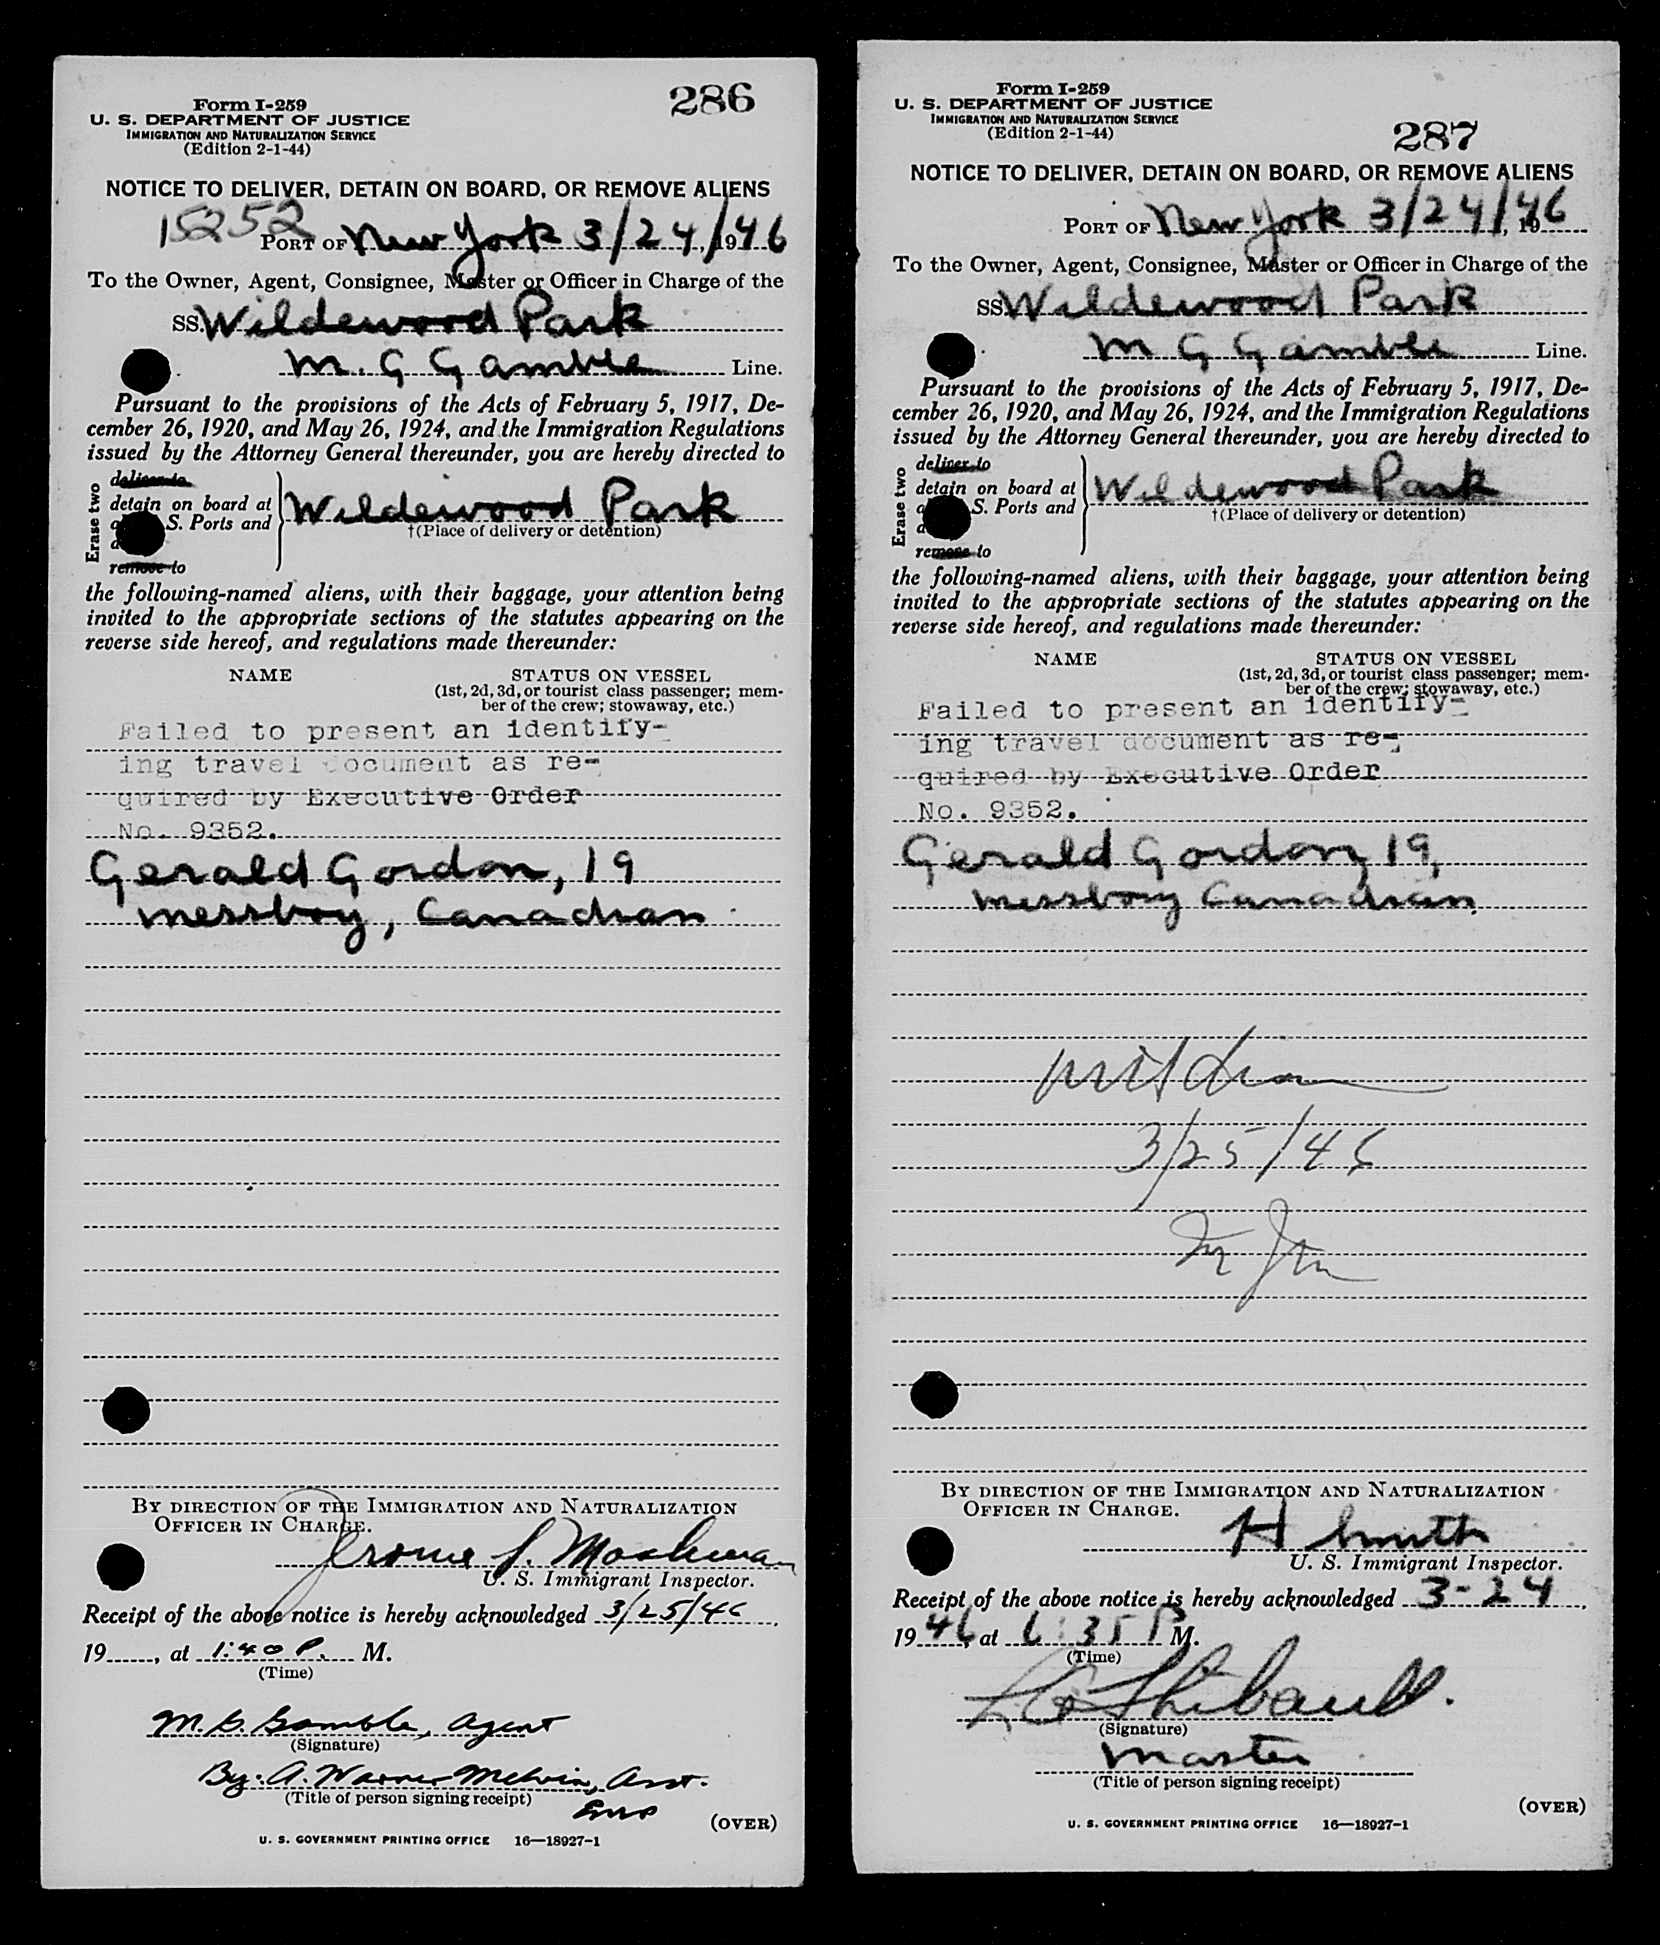 Form I-259
286
U. S. DEPARTMENT OF JUSTICE
IMMIGRATION AND NATURALIZATION SERVICE
(Edition 2-1-44)
NOTICE TO DELIVER, DETAIN ON BOARD, OR REMOVE ALIENS
15252
PORT OF New York 3/24/, 1946
To the Owner, Agent, Consignee, Master or Officer in Charge of the
SS. Wildewood Park
M. G Gamble Line.
Pursuant to the provisions of the Acts of February 5, 1917, De-
cember 26, 1920, and May 26, 1924, and the Immigration Regulations
issued by the Attorney General thereunder, you are hereby directed to
Erase two
deliver to
detain on board at
S. Ports and
remove to
Wildewood Park
†(Place of delivery or detention)
the following-named aliens, with their baggage, your attention being
invited to the appropriate sections of the statutes appearing on the
reverse side hereof, and regulations made thereunder:
NAME STATUS ON VESSEL
(1st, 2d, 3d, or tourist class passenger; mem-
ber of the crew; stowaway, etc.)
Failed to present an identify-
ing travel document as re-
quired by Executive Order
No. 9352.
Gerald Gordon, 19
messboy, Canadian
BY DIRECTION OF THE IMMIGRATION AND NATURALIZATION
OFFICER IN CHARGE.
Jerome
U. S. Immigrant Inspector.
Receipt of the above notice is hereby acknowledged 3/25/46,
19, at 1:40 P. M.
(Time)
M. G. Gamble, Agent
(Signature)
By: A. Warner Melvin, Asst.
(Title of person signing receipt)
(OVER)
U. S. GOVERNMENT PRINTING OFFICE 16—18927-1
Form I-259
U. S. DEPARTMENT OF JUSTICE
IMMIGRATION AND NATURALIZATION SERVICE
(Edition 2-1-44)
287
NOTICE TO DELIVER, DETAIN ON BOARD, OR REMOVE ALIENS
PORT OF New York 3/24/46, 19
To the Owner, Agent, Consignee, Master or Officer in Charge of the
SS. Wildewood Park
M G Gamble Line.
Pursuant to the provisions of the Acts of February 5, 1917, De-
cember 26, 1920, and May 26, 1924, and the Immigration Regulations
issued by the Attorney General thereunder, you are hereby directed to
Erase two
deliver to
detain on board at
S. Ports and
remove to
Wildewood Park
†(Place of delivery or detention)
the following-named aliens, with their baggage, your attention being
invited to the appropriate sections of the statutes appearing on the
reverse side hereof, and regulations made thereunder:
NAME STATUS ON VESSEL
(1st, 2d, 3d, or tourist class passenger; mem-
ber of the crew; stowaway, etc.)
Failed to present an identify-
ing travel document as re-
quired by Executive Order
No. 9352.
Gerald Gordon, 19,
messboy Canadian
3/25/46
BY DIRECTION OF THE IMMIGRATION AND NATURALIZATION
OFFICER IN CHARGE.
H Smith
U. S. Immigrant Inspector.
Receipt of the above notice is hereby acknowledged 3-24,
1946, at 6:35 P M.
(Time)
Thibault.
(Signature)
Master
(Title of person signing receipt)
(OVER)
U. S. GOVERNMENT PRINTING OFFICE 16—18927-1